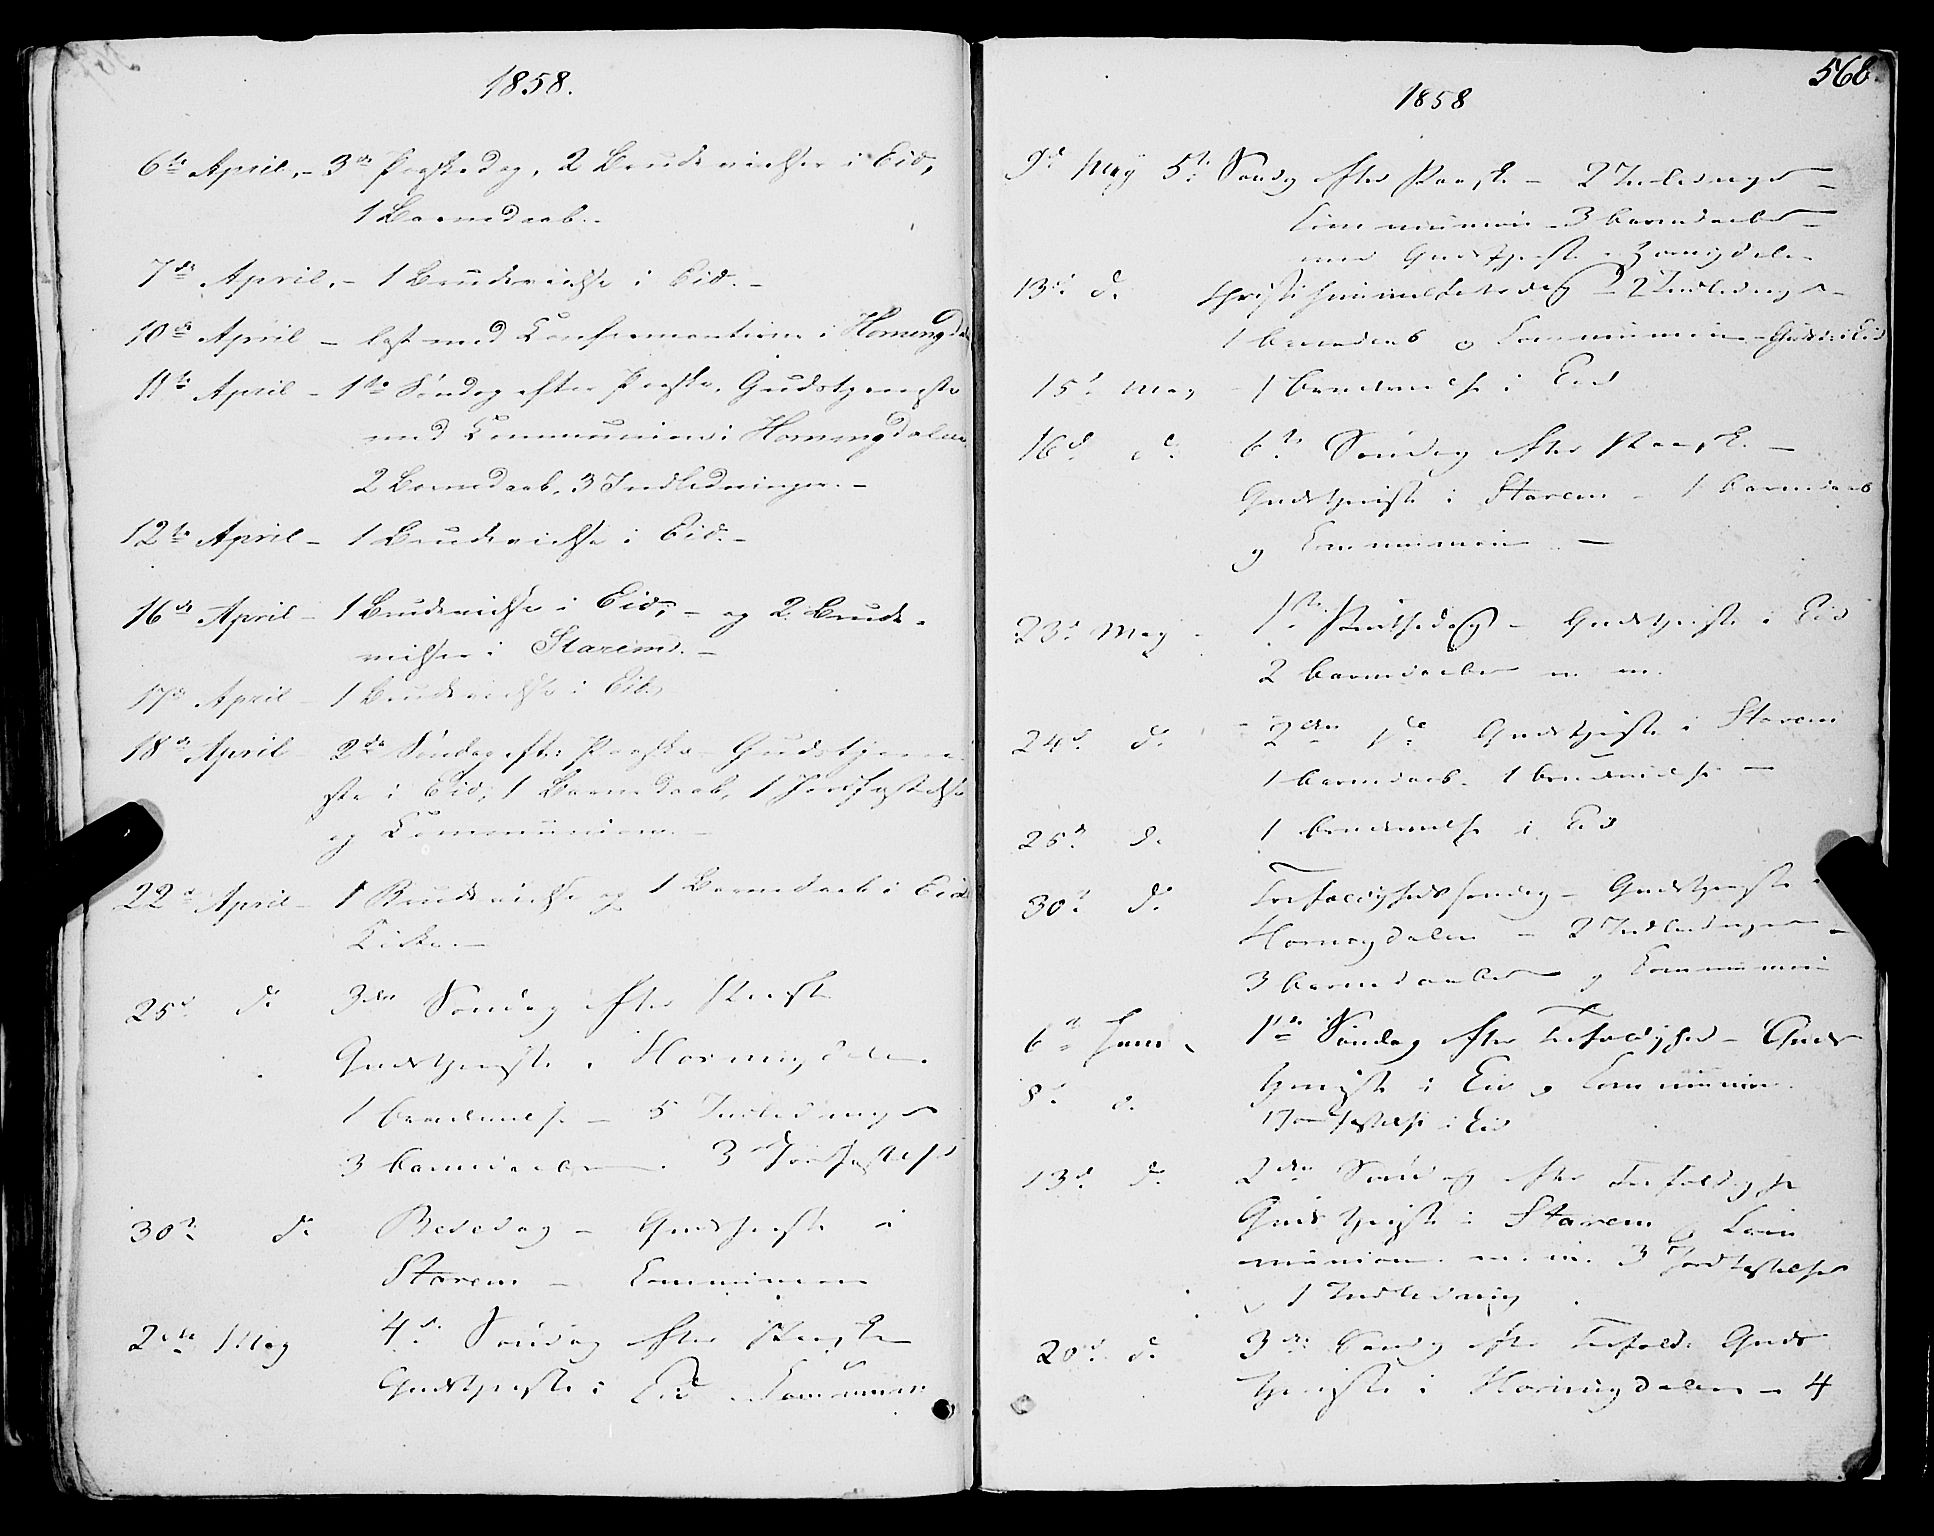 1858.
6te April. - 3die Paaskedag, 2 Brudevielser i Eid,
1 Barnedaab. -
7de April. - 1 Brudevielse i Eid. -
10de April - læst med Confirmanterne i Horningdalen
11te April - 1ste Søndag efter Paaske. Gudstjeneste
med Communion i Horningdalen
2 Barnedaab, 3 Indledninger. -
12te April - 1 Brudevielse i Eid. -
16de April - 1 Brudevielse i Eid, - og 2 Brude-
vielser i Starem. -
17de April - 1 Brudevielse i Eid.
18de April - 2den Søndag eft: Paaske - Gudstjene-
ste i Eid; 1 Barnedaab, 1 Jordfæstelse
og Communion. -
22de April - 1 Brudevielse og 1 Barnedaab i Eids
Kirke. -
25d do 3die Søndag efter Paaske
Gudstjeneste i Horningdalen
1 brudevielse - 5 Indledninger
3 barnedaaber. 3 Jordfæstelser
30te do Bededag - Gudstjeneste i
Starem - Communion
2den May 4d Søndag efter Paaske
Gudstjeneste i Eid - Communion
568.
1858
9d May 5te Søndg efter Paaske - 2 Indledninger -
Communion - 3 barnedaaber -
Gudstjeneste i Horningdalen
13d d. Christi himmelfartsdag - 2 Indledninger -
1 barnedaab og Communion - Gudst: i Eid
15d May - 1 brudevielse i Eid
16d do 6te Søndag efter Paaske -
Gudstjeneste i Starem - 1 barnedaab
og Communion -
23d May - 1ste Pintsedag - Gudstjeneste i Eid
2 barnedaaber m. m.
24d do - 2den do Gudstjeneste i Starem
1 barnedaab. 1 brudevielse -
25de d. 1 brudevielse i Eid
30te do Trefoldighedssøndag - Gudstjeneste i
Horningdalen - 2 Indledninger -
3 barnedaaber og Communion
6te Juni 1ste Søndag efter Trefoldighed - Guds
tjeneste i Eid og Communion.
8d d. 1 Jordfæstelse i Eid
13d do 2den Søndag efter Trefoldighed
Gudstjeneste i Starem og Com
munion m. m. 3 Jordfæstelser
1 Indledning
20d do 3die Søndg efter Trefold: Guds
tjeneste i Horningdalen - 4